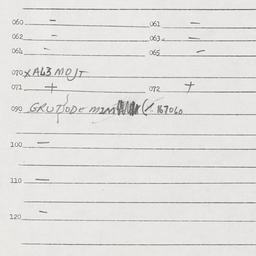 060 – 061 –
062 – 063 –
064 – 065 –
070 x A63 MOJT
071 + 072 +
090 167060
100 –
110 –
120 –